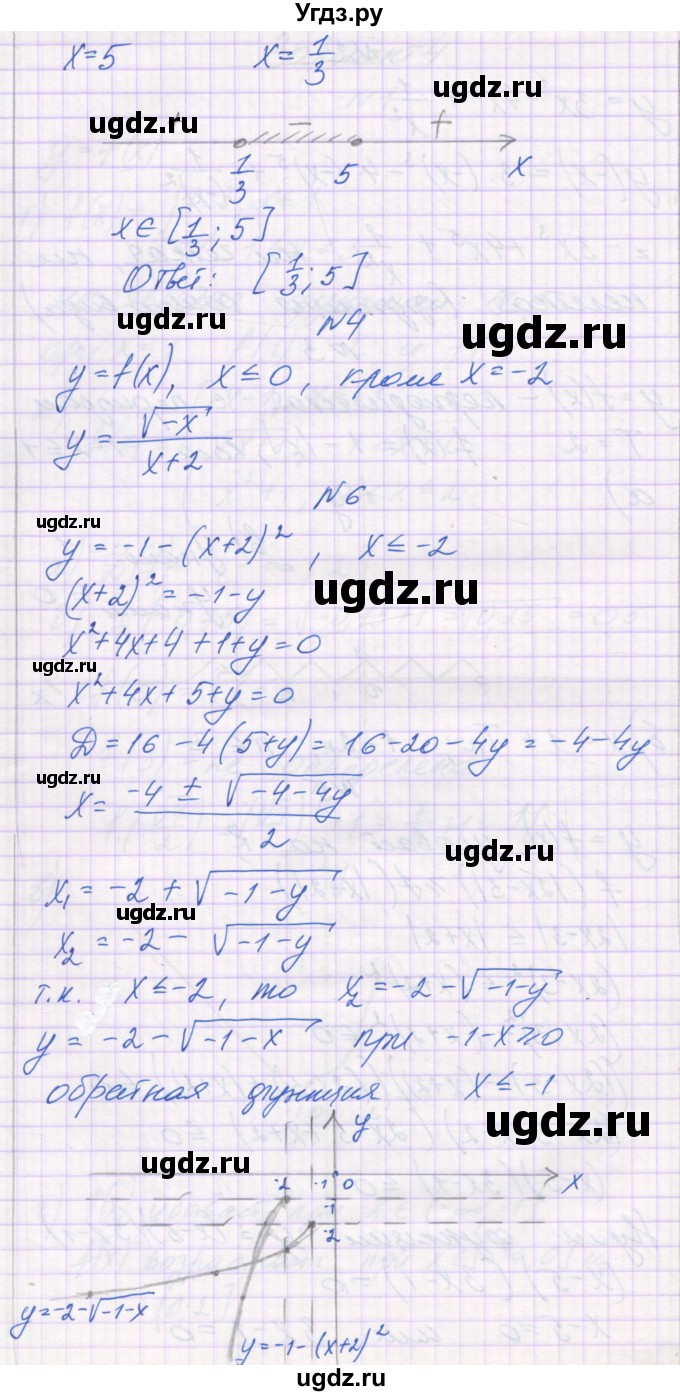 Угдз.ру
x=5 x=1/3
ugdz.ru
ugdz.ru
− +
1/3 5 x
x∈[1/3; 5]
Ответ: [1/3; 5]
ugdz.ru
N4
ugdz.ru
y=f(x), x≤0, кроме x=-2
y=√(-x)/(x+2)
N6
ugdz.ru
ugdz.ru
y=-1-(x+2)², x≤-2
(x+2)²=-1-y
ugdz.ru
x²+4x+4+1+y=0
ugdz.ru
x²+4x+5+y=0
Д=16-4(5+y)=16-20-4y=-4-4y
ugdz.ru
x=(-4±√(-4-4y))/2
ugdz.ru
x₁=-2+√(-1-y)
ugdz.ru
x₂=-2-√(-1-y)
т.к. x≤-2, то x₂=-2-√(-1-y)
y=-2-√(-1-x) при -1-x≥0
обратная функция x≤-1
ugdz.ru
y
ugdz.ru
-2 -1 0 x
-1
-2
y=-2-√(-1-x)
y=-1-(x+2)²
ugdz.ru